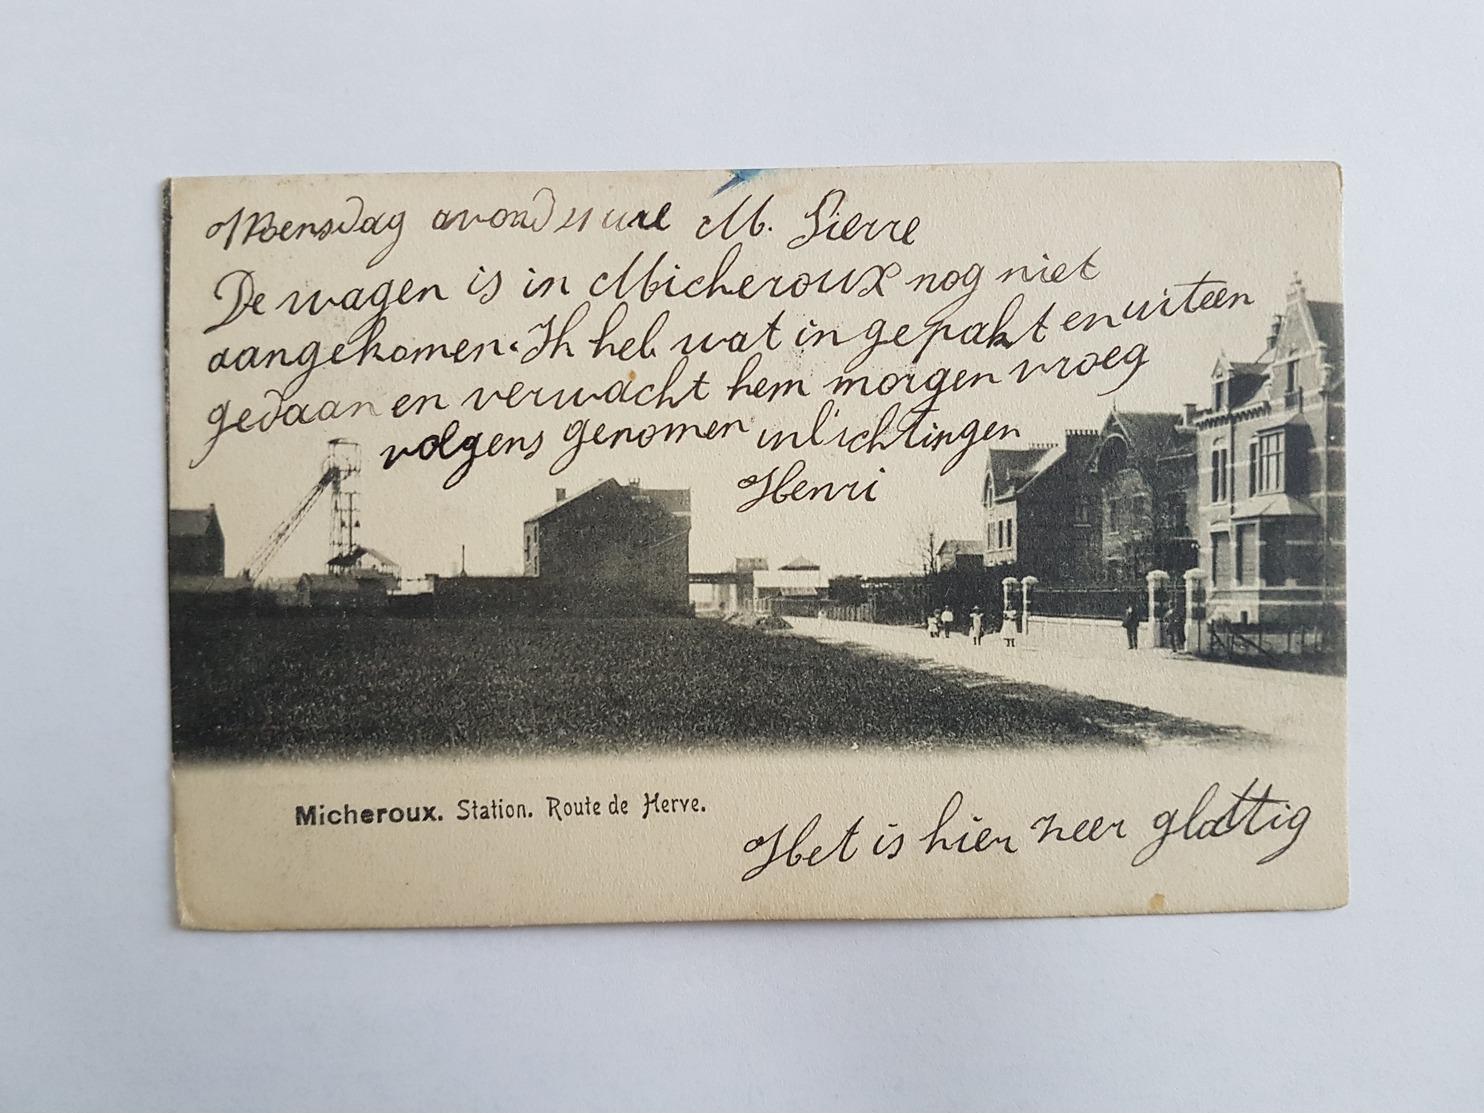 Woensdag avond 11 ure M. Pierre
De wagen is in Micheroux nog niet
aangekomen. Ik heb wat in gepakt en uiteen
gedaan en verwacht hem morgen vroeg
volgens genomen inlichtingen
Henri
Micheroux. Station. Route de Herve.
Het is hier zeer glattig